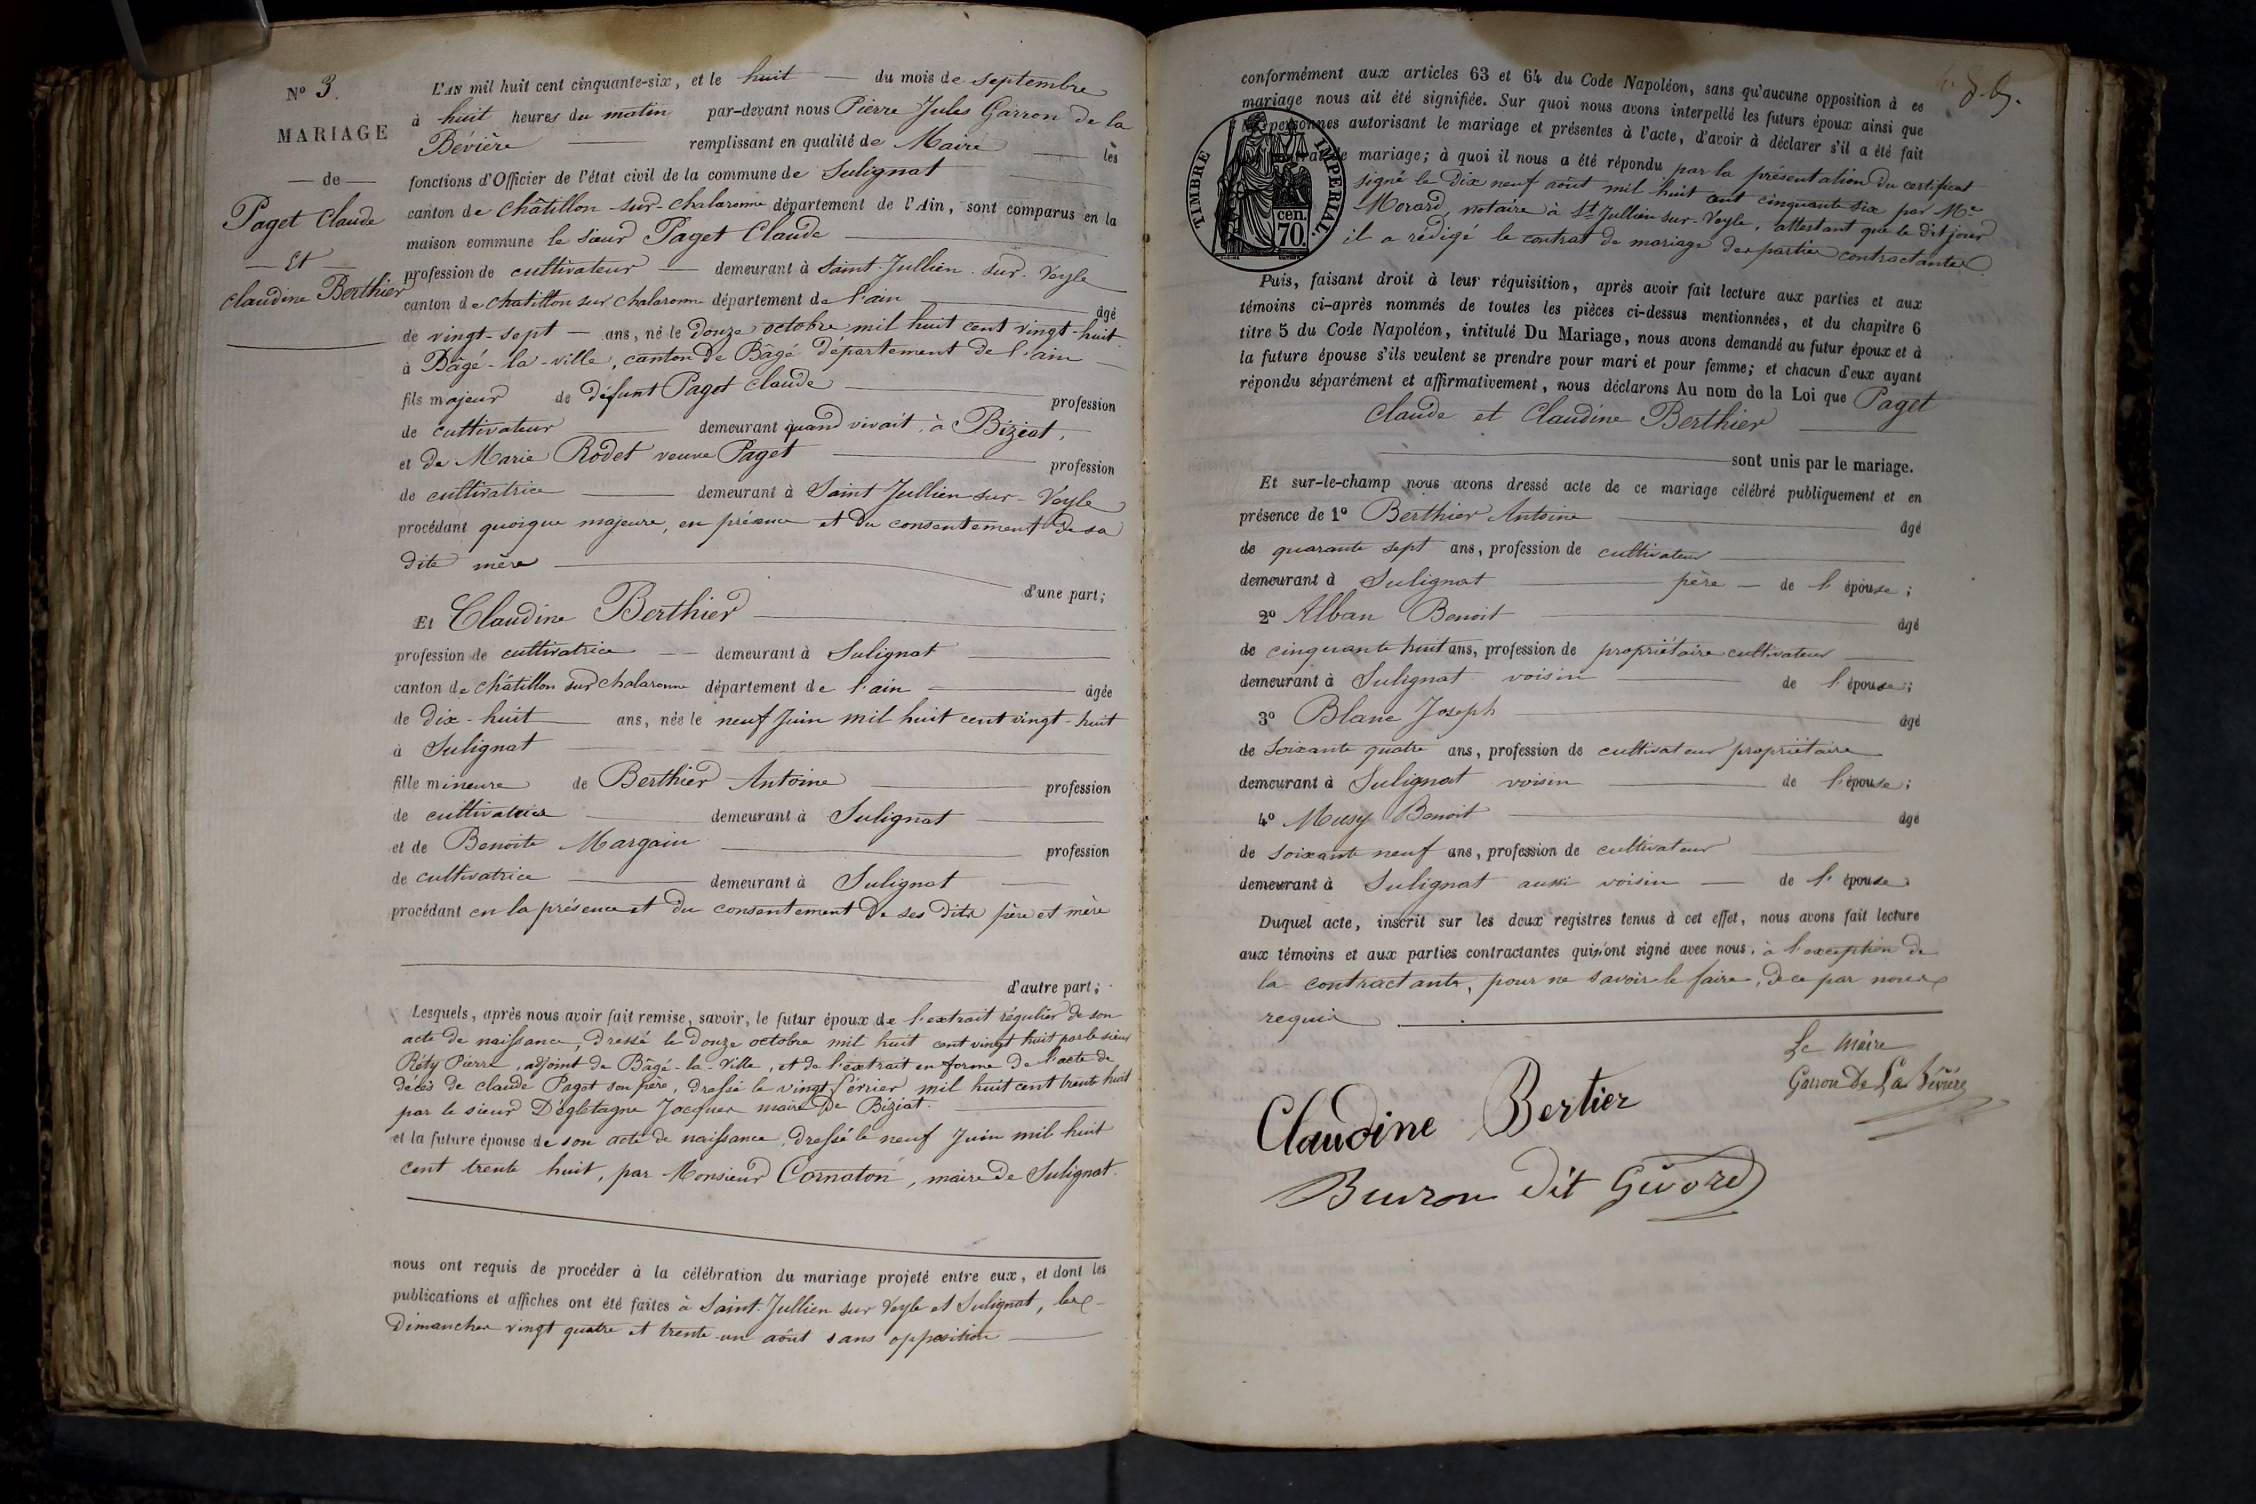 N° 3.
MARIAGE
— de —
Paget Claude
— Et —
Claudine Berthier
L'AN mil huit cent cinquante-six, et le huit — du mois de septembre
à huit heures du matin par-devant nous Pierre Jules Garron de la
Bévière — remplissant en qualité de Maire — les
fonctions d'Officier de l'état civil de la commune de Sulignat
canton de Châtillon-sur-Chalaronne département de l'Ain, sont comparus en la
maison commune le sieur Paget Claude
profession de cultivateur — demeurant à Saint-Jullien-sur-Veyle
canton de Chatillon sur Chalaronne département de l'ain — âgé
de vingt-sept — ans, né le Douze octobre mil huit cent vingt-huit
à Bâgé-la-ville, canton de Bâgé département de l'ain —
fils majeur de défunt Paget Claude — profession
de cultivateur — demeurant quand vivait, à Biziat,
et de Marie Rodet veuve Paget — profession
de cultivatrice — demeurant à Saint Jullien-sur-Veyle
procédant quoique majeure, en présence et du consentement de sa
dite mère — d'une part;
Et Claudine Berthier —
profession de cultivatrice — demeurant à Sulignat —
canton de Châtillon sur Chalaronne département de l'ain — âgée
de dix-huit — ans, née le neuf Juin mil huit cent vingt-huit
à Sulignat —
fille mineure de Berthier Antoine — profession
de cultivateur — demeurant à Sulignat —
et de Benoite Margain — profession
de cultivatrice — demeurant à Sulignat —
procédant en la présence et du consentement de ses dits père et mère
d'autre part;
Lesquels, après nous avoir fait remise, savoir, le futur époux de l'extrait régulier de son
acte de naissance, dressé le Douze octobre mil huit cent vingt huit par le sieur
Réty Pierre, adjoint de Bâgé-la-Ville, et de l'extrait en forme de l'acte de
décès de Claude Paget son père, dressé le vingt février mil huit cent trente huit
par le sieur Dégletagne Jacques maire de Biziat. —
et la future épouse de son acte de naissance, dressé le neuf Juin mil huit
cent trente huit, par Monsieur Cornaton, maire de Sulignat.
nous ont requis de procéder à la célébration du mariage projeté entre eux, et dont les
publications et affiches ont été faites à Saint-Jullien sur Veyle et Sulignat, les
Dimanches vingt quatre et trente-un août sans opposition —
conformément aux articles 63 et 64 du Code Napoléon, sans qu'aucune opposition à ce
mariage nous ait été signifiée. Sur quoi nous avons interpellé les futurs époux ainsi que
personnes autorisant le mariage et présentes à l'acte, d'avoir à déclarer s'il a été fait
de mariage; à quoi il nous a été répondu par la présentation du certificat
signé le Dix neuf août mil huit cent cinquante six par Me
Morard, notaire à St Jullien-sur-Veyle, attestant que le dit jour
il a rédigé le contrat de mariage des parties contractantes.
TIMBRE IMPÉRIAL.
70 cen.
Puis, faisant droit à leur réquisition, après avoir fait lecture aux parties et aux
témoins ci-après nommés de toutes les pièces ci-dessus mentionnées, et du chapitre 6
titre 5 du Code Napoléon, intitulé Du Mariage, nous avons demandé au futur époux et à
la future épouse s'ils veulent se prendre pour mari et pour femme; et chacun d'eux ayant
répondu séparément et affirmativement, nous déclarons Au nom de la Loi que Paget
Claude et Claudine Berthier —
— sont unis par le mariage.
Et sur-le-champ nous avons dressé acte de ce mariage célébré publiquement et en
présence de 1° Berthier Antoine — âgé
de quarante sept ans, profession de cultivateur —
demeurant à Sulignat — père — de l'épouse;
2° Alban Benoit — âgé
de cinquante huit ans, profession de propriétaire cultivateur —
demeurant à Sulignat voisin — de l'épouse;
3° Blanc Joseph — âgé
de soixante quatre ans, profession de cultivateur propriétaire
demeurant à Sulignat voisin — de l'épouse;
4° Musy Benoit — âgé
de soixante neuf ans, profession de cultivateur —
demeurant à Sulignat aussi voisin — de l'épouse.
Duquel acte, inscrit sur les deux registres tenus à cet effet, nous avons fait lecture
aux témoins et aux parties contractantes qui ont signé avec nous, à l'exception de
la contractante, pour ne savoir le faire, de ce par nous
requis —
Le Maire
Garron De La Bévière
Claudine Bertier
Buiron dit Givord